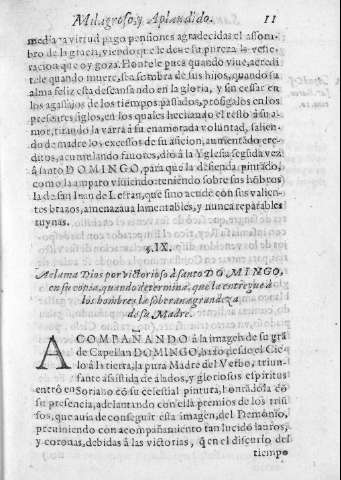 Milagroso, y Aplaudido. 11
media ra virtud pago pensiones agradecidas el assom-
bro de la gracia, viendo que le deue su pureza la vene-
racion que oy goza. Honrele pues quando viue, acredi
tele quando muere, sea sombra de sus hijos, quando su
alma feliz esta descansando en la gloria, y sin cessar en
los agassajos de los tiempos passados, prosigalos en los
presentes siglos, en los quales hechando el resto â su a-
mor, tirando la varra à su enamorada voluntad, salien-
do de madre los excessos de su aficion, aumentãdo cre-
ditos, acumulando fauores, diò a la Yglesia segũda vez
à santo DOMINGO, para que la defienda pintado,
como la amparo viuiendo teniendo sobre sus hõbros
la de san Iuan de Letran, que sino acude con sus valien-
tes brazos, amenazaua lamentables, y nunca reparables
ruynas.
§. IX.
Aclama Dios por victorioso à santo DOMINGO,
en su copia, quando determina, que la entregue à
los hombres la soberana grandeza
de su Madre.
ACOMPAÑANDO â la imagen de su grã
de Capellan DOMINGO, baxo desde el Cie-
lo â la tierra, la pura Madre del Verbo, triun-
fante assistida de alados, y gloriosos espiritus
entrò en Soriano cõ su celestial pintura, honrãdola cõ
su presencia, adelantando con ella premios de los triũ
fos, que auia de conseguir esta imagen, del Demonio,
preuiniendo con acompañamiento tan lucido lauros,
y coronas, debidas â las victorias, q̃ en el discurso del
tiempo